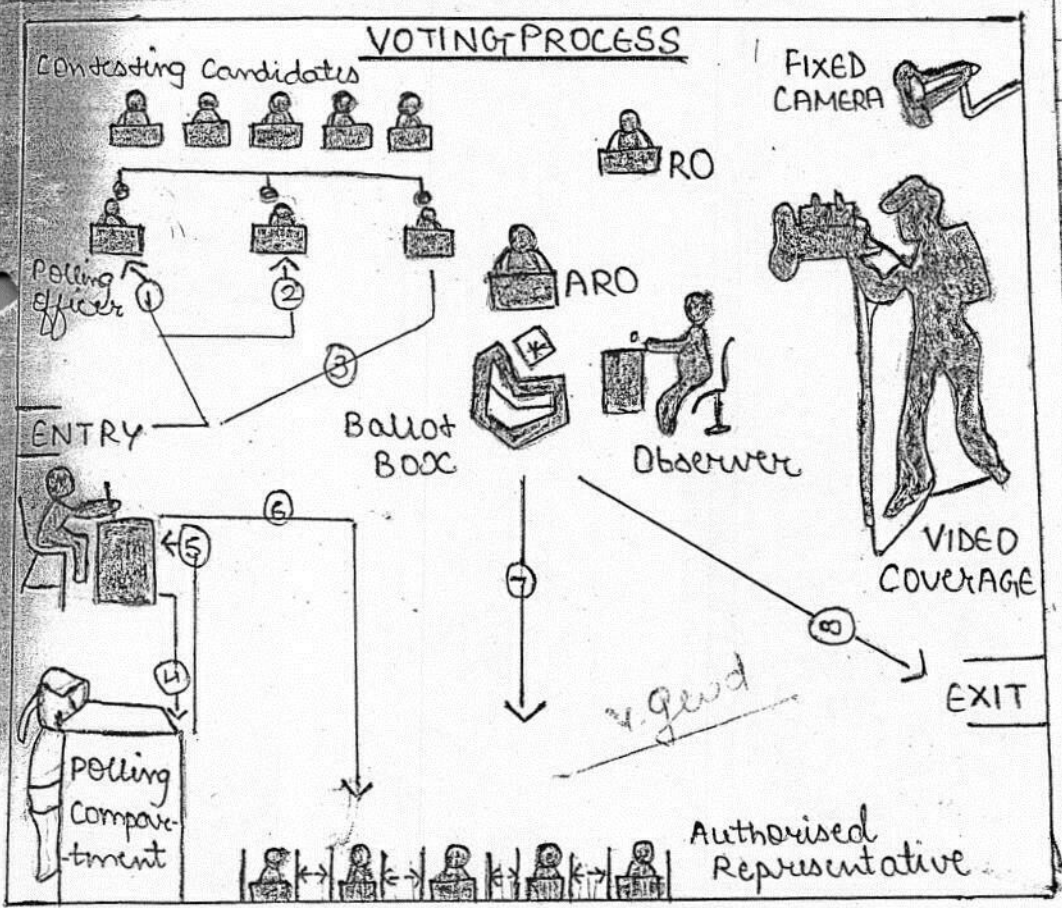 VOTING PROCESS
Contesting Candidates
FIXED
CAMERA
RO
Polling
Officer
1
2
ARO
3
ENTRY
Ballot
BOX
Observer
6
5
7
VIDEO
COVERAGE
8
4
EXIT
Polling
Compar-
-tment
Authorised
Representative